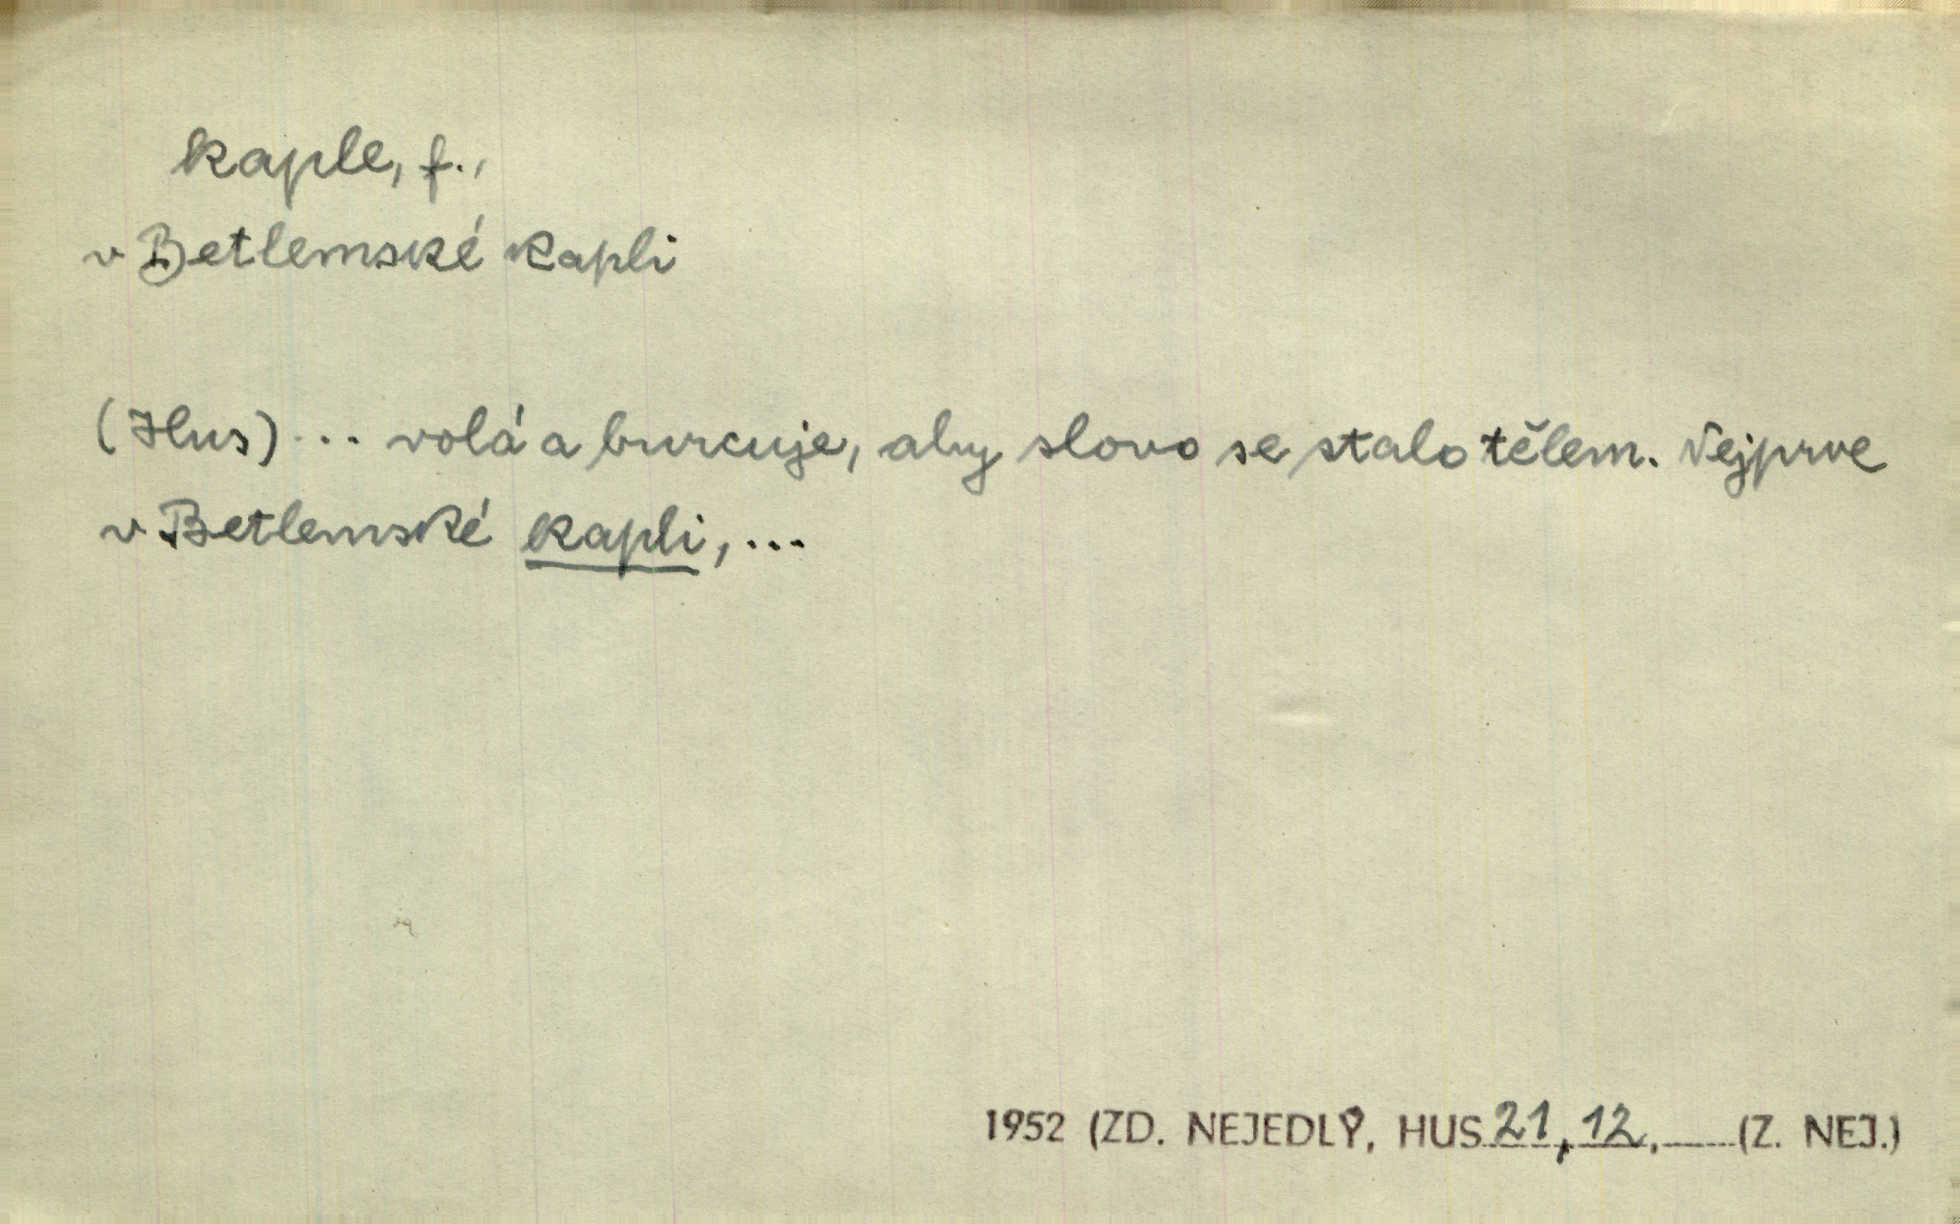 kaple, f.,
v Betlemské kapli
(Hus) ... volá a burcuje, aby slovo se stalo tělem. Nejprve
v Betlemské kapli, ...
1952 (ZD. NEJEDLÝ, HUS 21, 12. (Z. NEJ.)